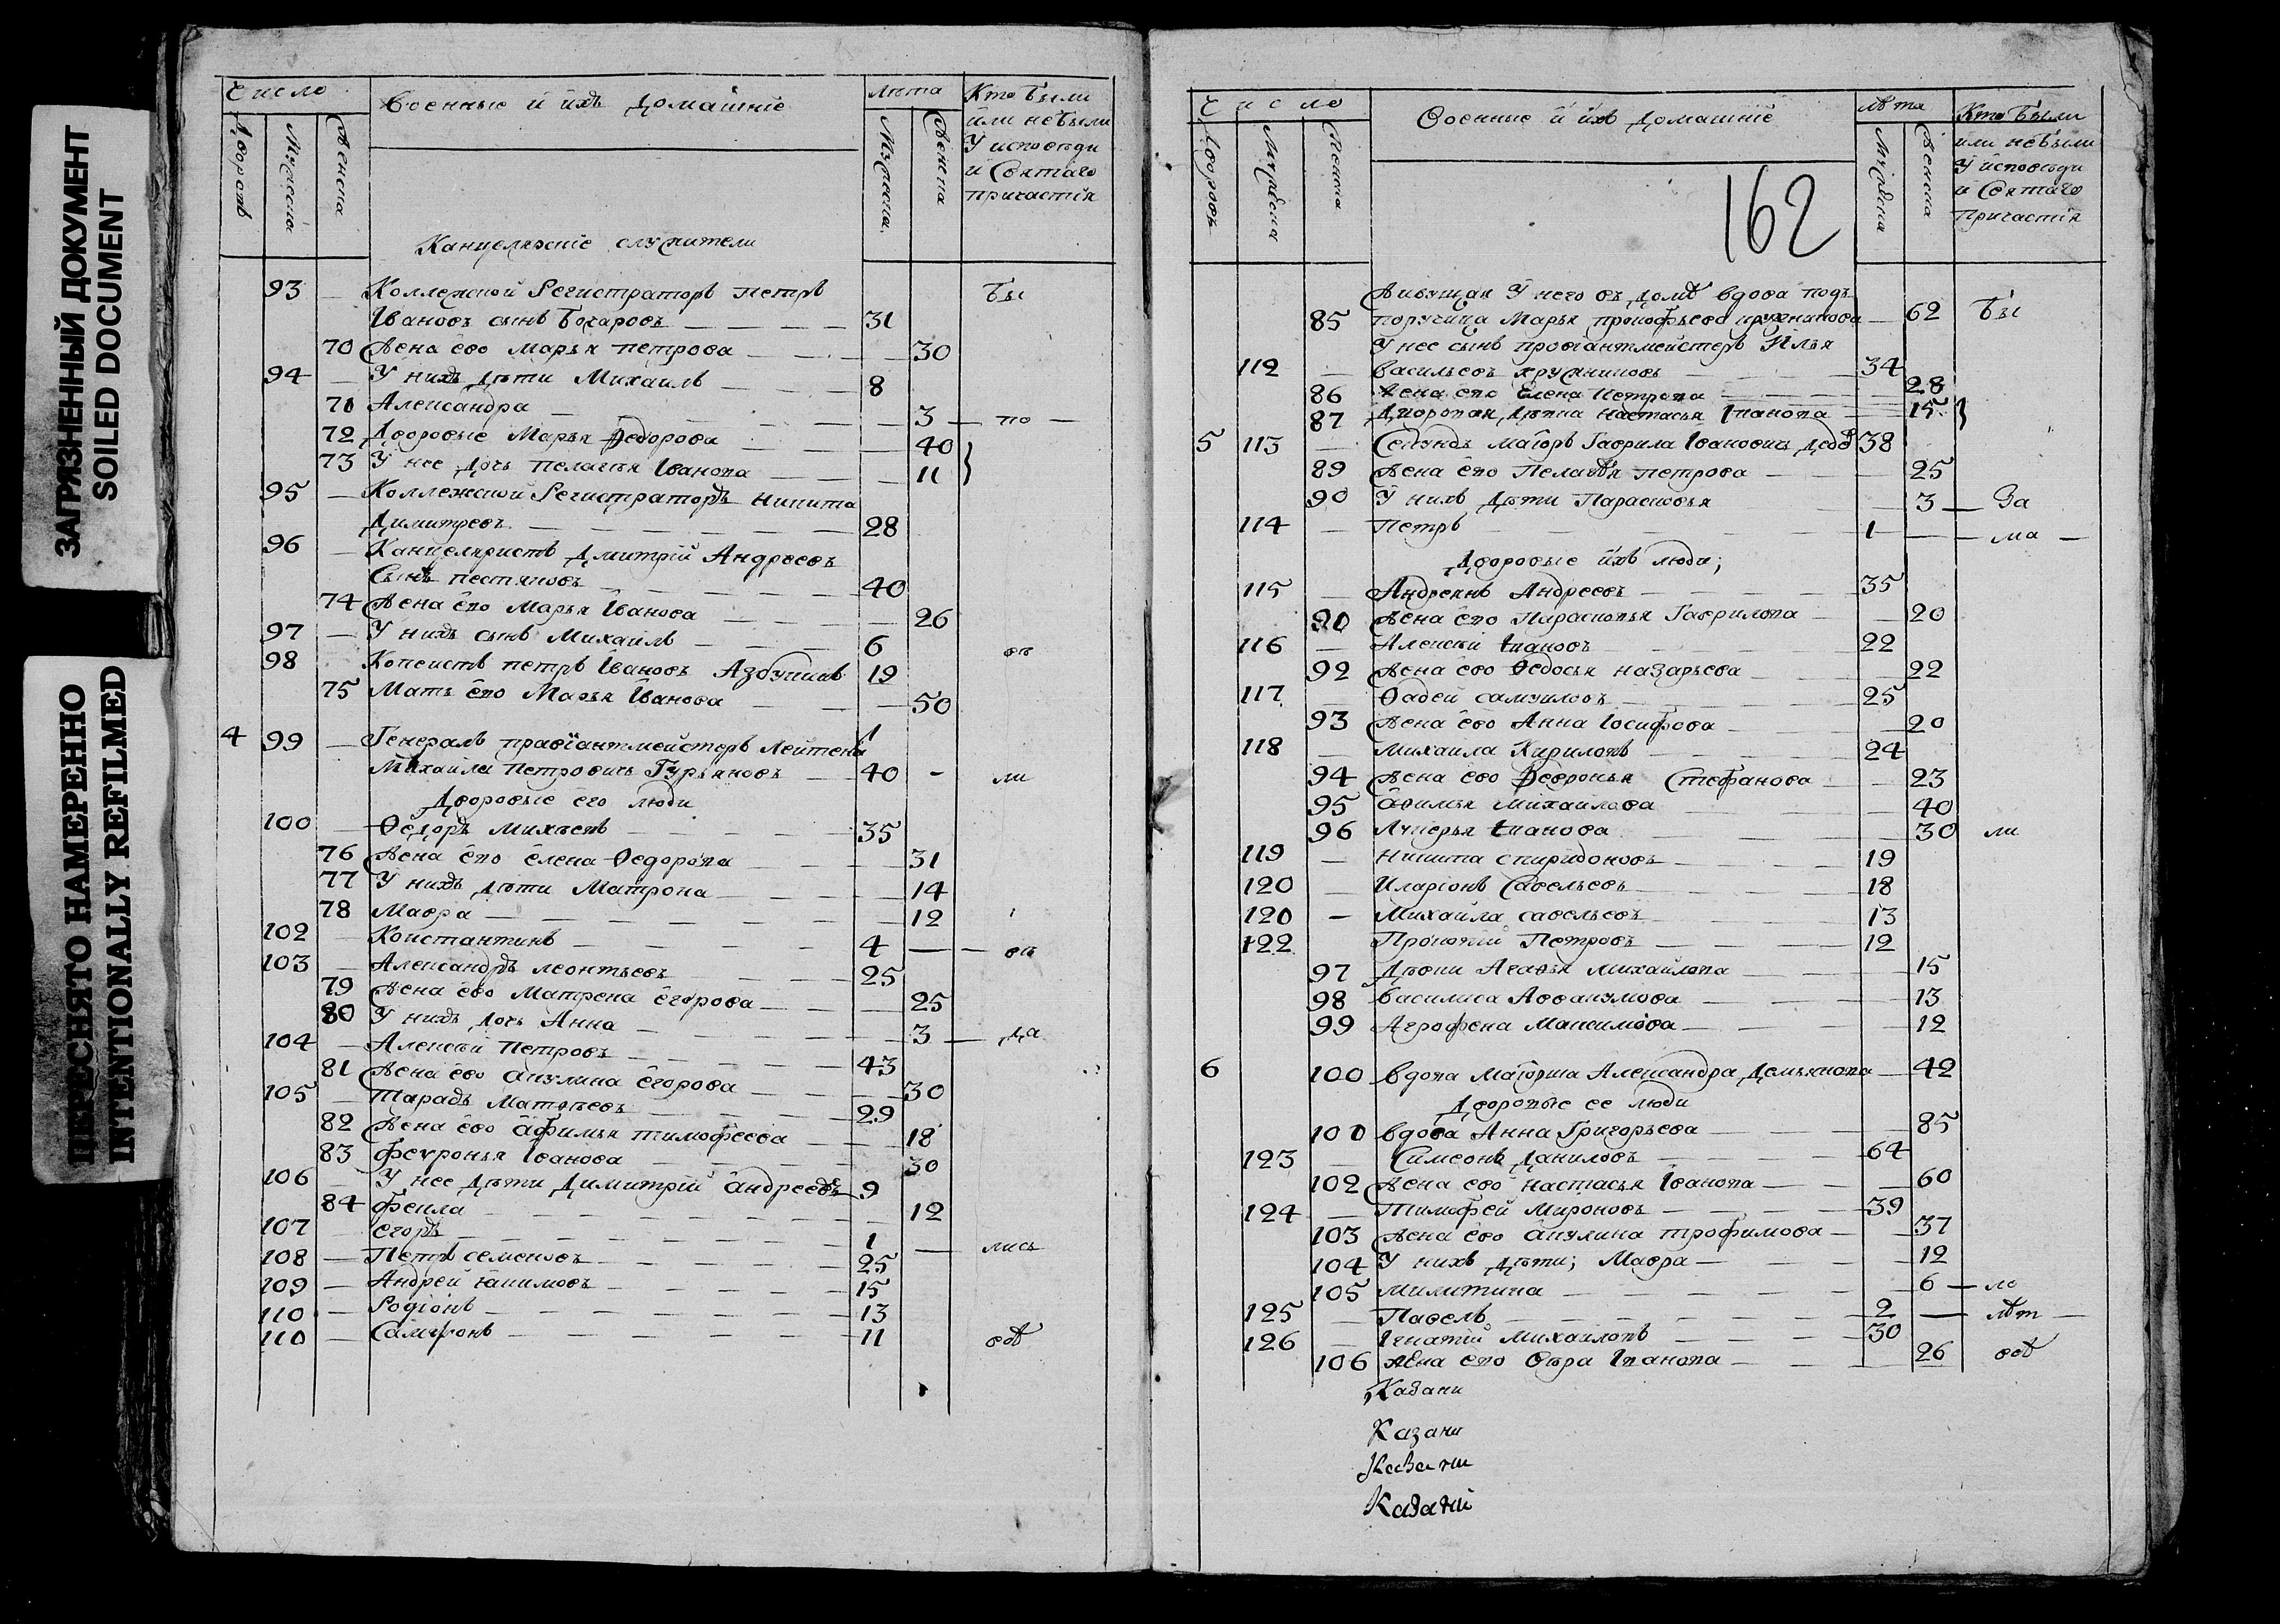 ЗАГРЯЗНЕННЫЙ ДОКУМЕНТ
SOILED DOCUMENT
ПЕРЕСНЯТО НАМЕРЕННО
INTENTIONALLY REFILMED
Число Военные и ихъ домашніе Лѣта Кто были
или небыли
У исповѣди
и Святаго
причастія
Дворовъ Мужеска Женска Мужеска Женска
Канцелярскіе служители
93 — Коллежской Регистраторъ петръ бы
Ивановъ сынъ Бочаровъ — — — — 31
70 Жена ево Марья петрова — — — 30
94 — У нихъ дѣти Михаилъ — — — 8
71 Александра — — — 3 — то —
72 Дворовые Марья Ѳедорова — — 40
73 У нее дочь пелагья Іванова — — 11
95 — Коллежской Регистраторъ никита
Димитревъ — — — — 28
96 — Канцеляристъ Дмитрій Андреевъ
Сынъ пестяковъ — — — 40
74 Жена ево Марья Іванова — — 26
97 — У нихъ сынъ Михаилъ — — — 6 въ
98 Копеистъ петръ Івановъ Азбукинъ 19
75 Мать ево Марья Іванова — — 50
4 99 — Генералъ правіантмейстеръ лейтена
Михайла Петровичь Гурьяновъ — 40 - ли
Дворовые его люди
100 — Ѳедоръ михѣевъ — — — — 35
76 Жена ево елена Ѳедорова — — 31
77 У нихъ дѣти Матрона — — — 14
78 Мавра — — — — 12
102 — Константинъ — — — 4 — — въ
103 — Александръ леонтьевъ — — — 25
79 Жена ево Матрена егорова — — 25
80 У нихъ дочь Анна — — — 3 — да
104 — Алексѣй Петровъ — — — 43
81 Жена ево акулина егорова — — 30
105 — тарасъ Матвѣевъ — — — 29
82 Жена ево афимья тимофеева — — 18
83 февронья Іванова — — — 30
106 — У нее дѣти Димитрій андреевъ — 9
84 фекла — — — — 12
107 егоръ — — — — 1 — лись
108 — Петръ семеновъ — — — 25
109 — Андрей якимовъ — — — 15
110 — Родіонъ — — — — 13
110 — Самсонъ — — — — 11 овѣ
Число Военные и ихъ домашніе лѣта Кто были
или небыли
У исповѣди
и Святаго
Причастія
Дворовъ Мужеска Женска Мужеска Женска
162
Живущая У него въ домѣ вдова подъ
85 поручица Марья прокофьева кружникова — 62 бы
У нее сынъ провіантмейстеръ Илья
112 — васильевъ кружниковъ — — 34
86 жена ево Елена Петрова — — 28
87 Дворовая дѣвка настасья Іванова — 15
5 113 — Секундъ маіоръ Гаврила Івановичь 38
89 Жена ево Пелагѣя петрова — — 25
90 У нихъ дѣти Парасковья — 3 — За
114 — Петръ — — — 1 — — ма —
Дворовые ихъ люди;
115 — Андреянъ Андреевъ — — — 35
90 Жена ево Парасковья Гаврилова — 20
116 — Алексѣй івановъ — — — 22
92 Жена ево Ѳедосья назарьева — 22
117 Ѳадей самуиловъ — — — 25
93 Жена ево Анна Іосифова — — 20
118 — Михаила Кириловъ — — — 24
94 Жена ево Февронья Стефанова — 23
95 афимья михаилова — — 40
96 Лукерья іванова — — 30 ли
119 — никита спиридоновъ — — — 19
120 — Иларіонъ Савельевъ — — — 18
120 — Михаила савельевъ — — — 13
122 Прокопій Петровъ — — — 12
97 Дѣвки Агафья михайлова — — 15
98 василиса Аввакумова — — 13
99 Аграфена Максимова — — 12
6 100 вдова маіорша Александра Демьянова — 42
Дворовые ее люди
101 вдова Анна Григорьева — — 85
123 — Симеонъ даниловъ — — — 64
102 Жена ево настасья Іванова — — 60
124 — тимофей Мироновъ — — — 39
103 Жена ево акулина трофимова — 37
104 У нихъ дѣти; Мавра — — 12
105 милитина — — 6 — ло
125 — Павелъ — — — 2 — лѣт —
126 — Ігнатій михаиловъ — — — 30
106 жена ево Ѳѣкла Іванова — — 26 овѣ
Казани
Казани
Казани
Казаній